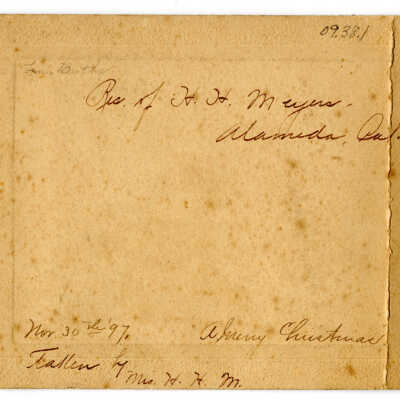 09.38.1
Res. of H. H. Meyers.
Alameda, Cal.
Nov. 30th 97.
A Merry Christmas
Taken by
Mrs. H. H. M.